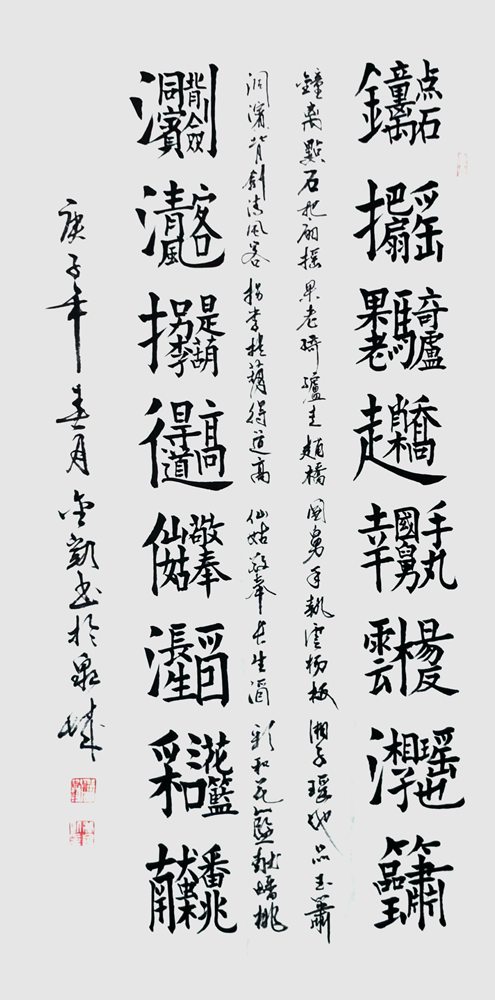 鐘離点石把扇搖果老騎驢走趙橋國舅手執雲楊板湘子瑤池品玉簫
鐘离點石把扇搖 果老騎驢走趙橋 國舅手執雲楊板 湘子瑤池品玉簫
洞濱背劍清風客 拐李提葫得道高 仙姑敬奉長生酒 彩和花籃獻蟠桃
洞濱背劍清風客拐李提葫得道高仙姑敬奉長生酒彩和花籃獻蟠桃
庚子年春月金凱書於泉城